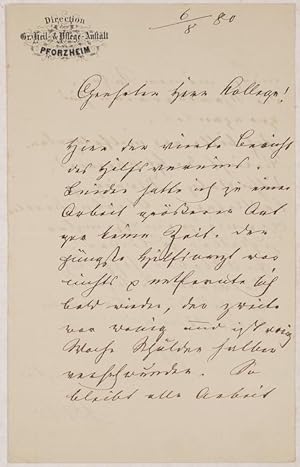 Direction
der
Gr. Heil- & Pflege-Anstalt
PFORZHEIM
6/8 80
Geehrter Herr Kollege!
Hier der vierte Bericht
des Hilfsvereins.
Leider hatte ich zu einer
Arbeit größerer Art
gar keine Zeit. Der
jüngste Hilfsarzt war
nichts & entfernte sich
bald wieder, der zweite
war wenig und ist vorige
Woche Schulden halber
verschwunden. So
bleibt alle Arbeit